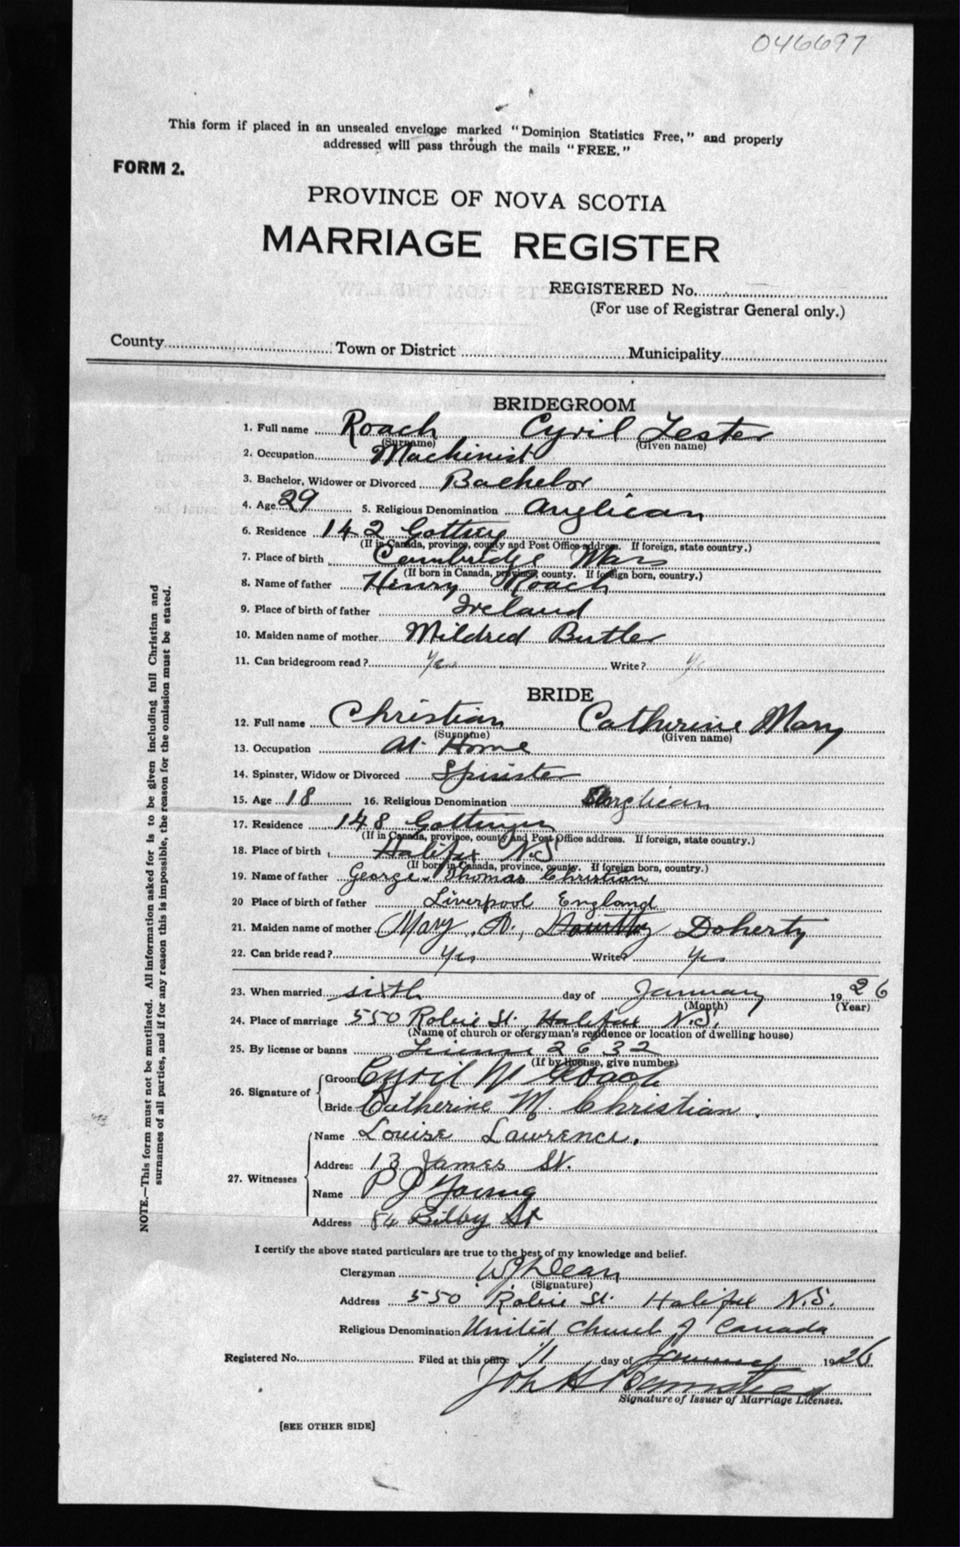 046697
This form if placed in an unsealed envelope marked "Dominion Statistics Free," and properly
addressed will pass through the mails "FREE."
FORM 2.
PROVINCE OF NOVA SCOTIA
MARRIAGE REGISTER
REGISTERED No.
(For use of Registrar General only.)
County Town or District Municipality
BRIDEGROOM
1. Full name Roach Cyril Lester
(Surname) (Given name)
2. Occupation Machinist
3. Bachelor, Widower or Divorced Bachelor
4. Age 29 5. Religious Denomination Anglican
6. Residence 142
(If in Canada, province, county and Post Office address. If foreign, state country.)
7. Place of birth Cambridge Mass
(If born in Canada, province, county. If foreign born, country.)
8. Name of father Henry Roach
9. Place of birth of father Ireland
10. Maiden name of mother Mildred Butler
11. Can bridegroom read? Yes Write? Yes
BRIDE
12. Full name Christian Catherine Mary
(Surname) (Given name)
13. Occupation At Home
14. Spinster, Widow or Divorced Spinster
15. Age 18 16. Religious Denomination Anglican
17. Residence 148 Gottingen
(If in Canada, province, county and Post Office address. If foreign, state country.)
18. Place of birth Halifax N.S
(If born in Canada, province, county. If foreign born, country.)
19. Name of father George Thomas Christian
20 Place of birth of father Liverpool England
21. Maiden name of mother Mary A., Doherty
22. Can bride read? Yes Write? Yes
23. When married sixth day of January 1926
(Month) (Year)
24. Place of marriage 550 Robie St. Halifax N.S.
(Name of church or clergyman's residence or location of dwelling house)
25. By license or banns License 2632
(If by license, give number)
26. Signature of Groom Cyril Roach
Bride Catherine M. Christian.
27. Witnesses Name Louise Lawrence.
Address 13 James St.
Name P J Young
Address 84 Bilby St
I certify the above stated particulars are true to the best of my knowledge and belief.
Clergyman W J Dean
(Signature)
Address 550 Robie St. Halifax N.S.
Religious Denomination United Church of Canada
Registered No. Filed at this office 11 day of January 1926.
Signature of Issuer of Marriage Licenses.
[SEE OTHER SIDE]
NOTE.—This form must not be mutilated. All information asked for is to be given including full Christian and
surnames of all parties, and if for any reason this is impossible, the reason for the omission must be stated.